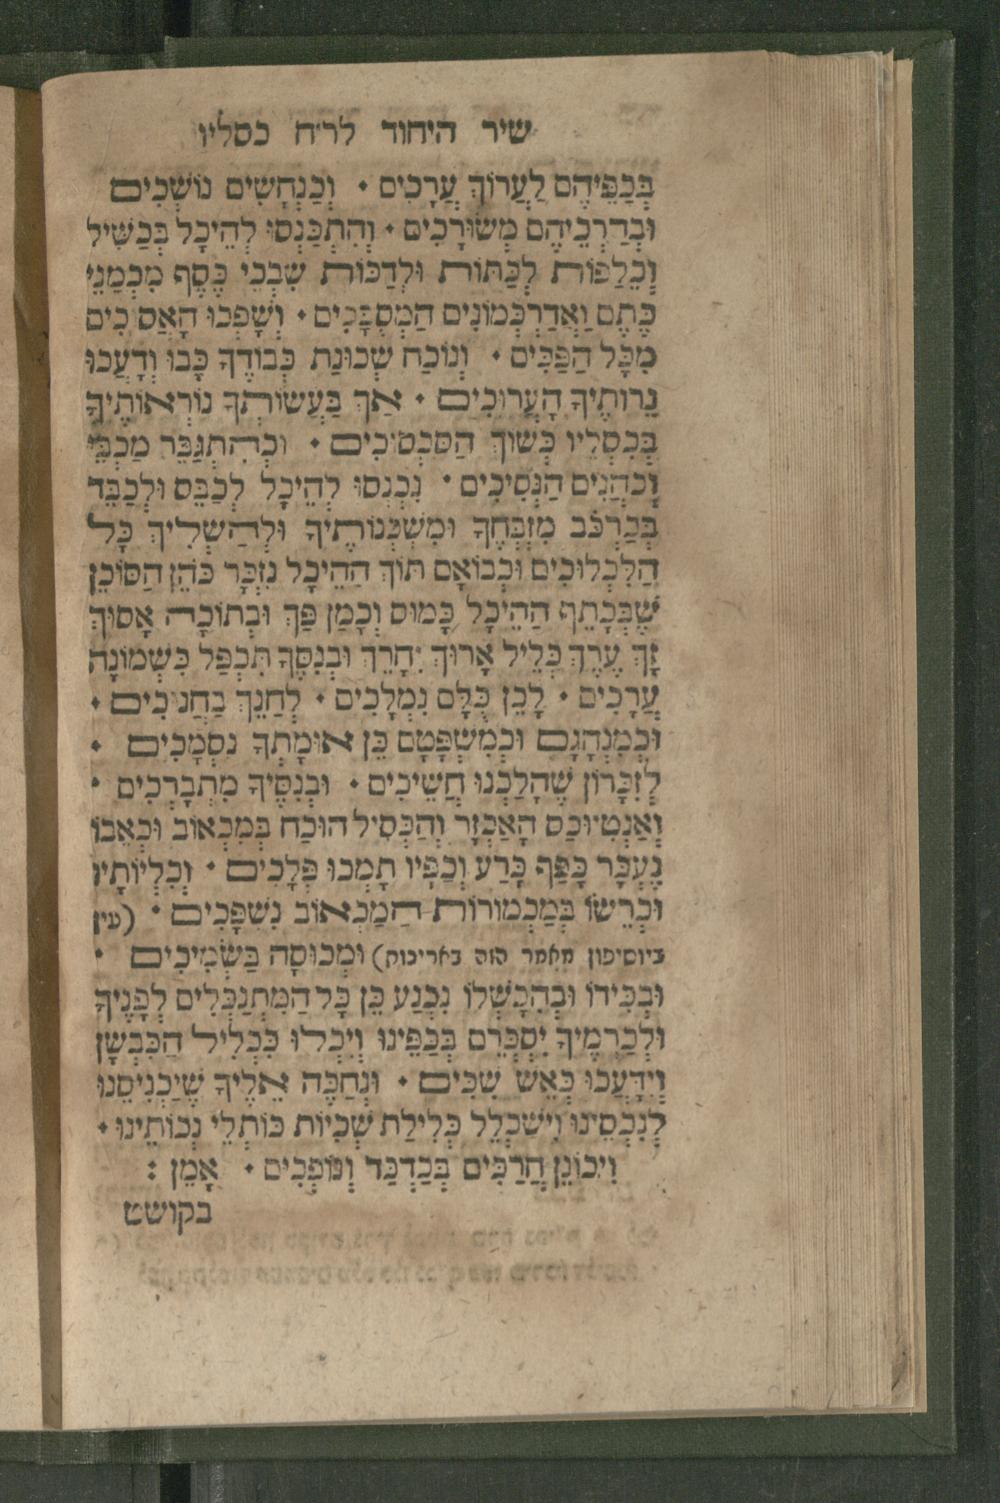 שיר היחוד לר״ח כסליו
בְּכַפֵּיהֶם לַעֲרוֹךְ עֲרָכִים • וְכַנְחָשִׁים נוֹשְׁכִים
וּבְדַרְכֵיהֶם מְשׂוֹרָכִים • וְהִתְכַּנְסוּ לְהֵיכָל בְּכַשִּׁיל
וְכֵלַפּוֹת לְכַתּוֹת וּלְדַכּוֹת שִׂבְכֵי כֶּסֶף מִכְמַנֵּי
כֶּתֶם וַאֲדַרְכְּמוֹנִים הַמְסֻבָּכִים • וְשָׁפְכוּ הָאֲסֻכִים
מִכָּל הַפַּכִּים • וְנוֹכַח שְׁכוּנַת כְּבוֹדֶךָ כָּבוּ וְדָעֲכוּ
נֵרוֹתֶיךָ הָעֲרוּכִים • אַךְ בַּעֲשׂוֹתְךָ נוֹרְאוֹתֶיךָ
בְּכִסְלֵיו כְּשׂוֹךְ הַסִּכְסוּכִים • וּכְהִתְגַּבֵּר מַכְבֵּי
וְכֹהֲנִים הַנְּסִיכִים • נִכְנְסוּ לְהֵיכָל לְכַבֵּס וּלְכַבֵּד
בְּכַרְכֹּב מִזְבְּחֶךָ וּמִשְׁכְּנוֹתֶיךָ וּלְהַשְׁלִיךְ כָּל
הַלִּכְלוּכִים וּכְבוֹאָם תּוֹךְ הַהֵיכָל נִזְכָּר כֹּהֵן הַסּוֹכֵן
שֶׁבְּכָתֵף הַהֵיכָל כָּמוּס וְכָמַן פַּךְ וּבְתוֹכָהּ אָסוּךְ
זָךְ עֶרֶךְ כְּלֵיל אָרוּךְ יָחָרֵךְ וּבְנִסְּךָ תִּכְפַּל כִּשְׁמוֹנָה
עֲרָכִים • לָכֵן כֻּלָּם נִמְלָכִים • לְחַנֵּךְ בַּחֲנֻכִים •
וּכְמִנְהָגָם וּכְמִשְׁפָּטָם כֵּן אוּמָתְךָ נִסְמָכִים •
לְזִכָּרוֹן שֶׁהָלַכְנוּ חֲשֵׁיכִים • וּבְנִסֶּיךָ מִתְבָּרְכִים •
וְאַנְטִיוֹכַס הָאַכְזָר וְהַכְּסִיל הוּכַח בְּמִכְאוֹב וּכְאֵבוֹ
נֶעְכָּר כָּפַף כָּרַע וְכַפָּיו תָמְכוּ פְּלָכִים • וְכִלְיוֹתָיו
וּכְרֵשׂוֹ בְּמַכְמוֹרוֹת הַמַּכְאוֹב נִשְׁפָּכִים • (עיין
ביוסיפון מאמר הזה באריכות) וּמְכוּסָה בַּשְּׂמִיכִים •
וּבְכִידוֹ וּבְהִכָּשְׁלוֹ נִכְנַע כֵּן כָּל הַמִּתְנַכְּלִים לְפָנֶיךָ
וּלְכַרְמֶיךָ יִסְכְּרֵם בְּכַפֵּינוּ וְיִכְלוּ כִּכְלִיל הַכִּבְשָׁן
וְיִדָּעֲכוּ כְּאֵשׁ שִׂכִּים • וּנְחַכֶּה אֵלֶיךָ שֶׁיַּכְנִיסֵנוּ
לְנִכְסֵינוּ וִישַׁכְלֵל כְּלִילַת שְׂכִיּוֹת כּוֹתְלֵי נְכוֹתֵינוּ •
וִיכוֹנֵן חֲרַכִּים בְּכַדְכַּד וְנוֹפְכִים • אָמֵן :
בקושט